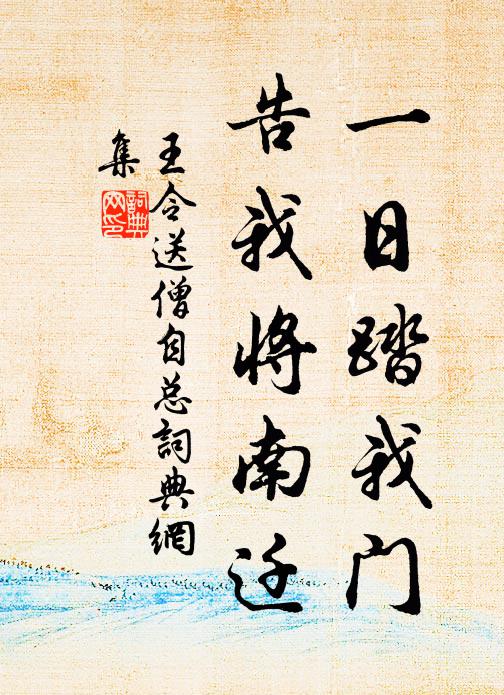 一日踏我门
告我将南迁
王令送僧自总词典網
集
詞典网印